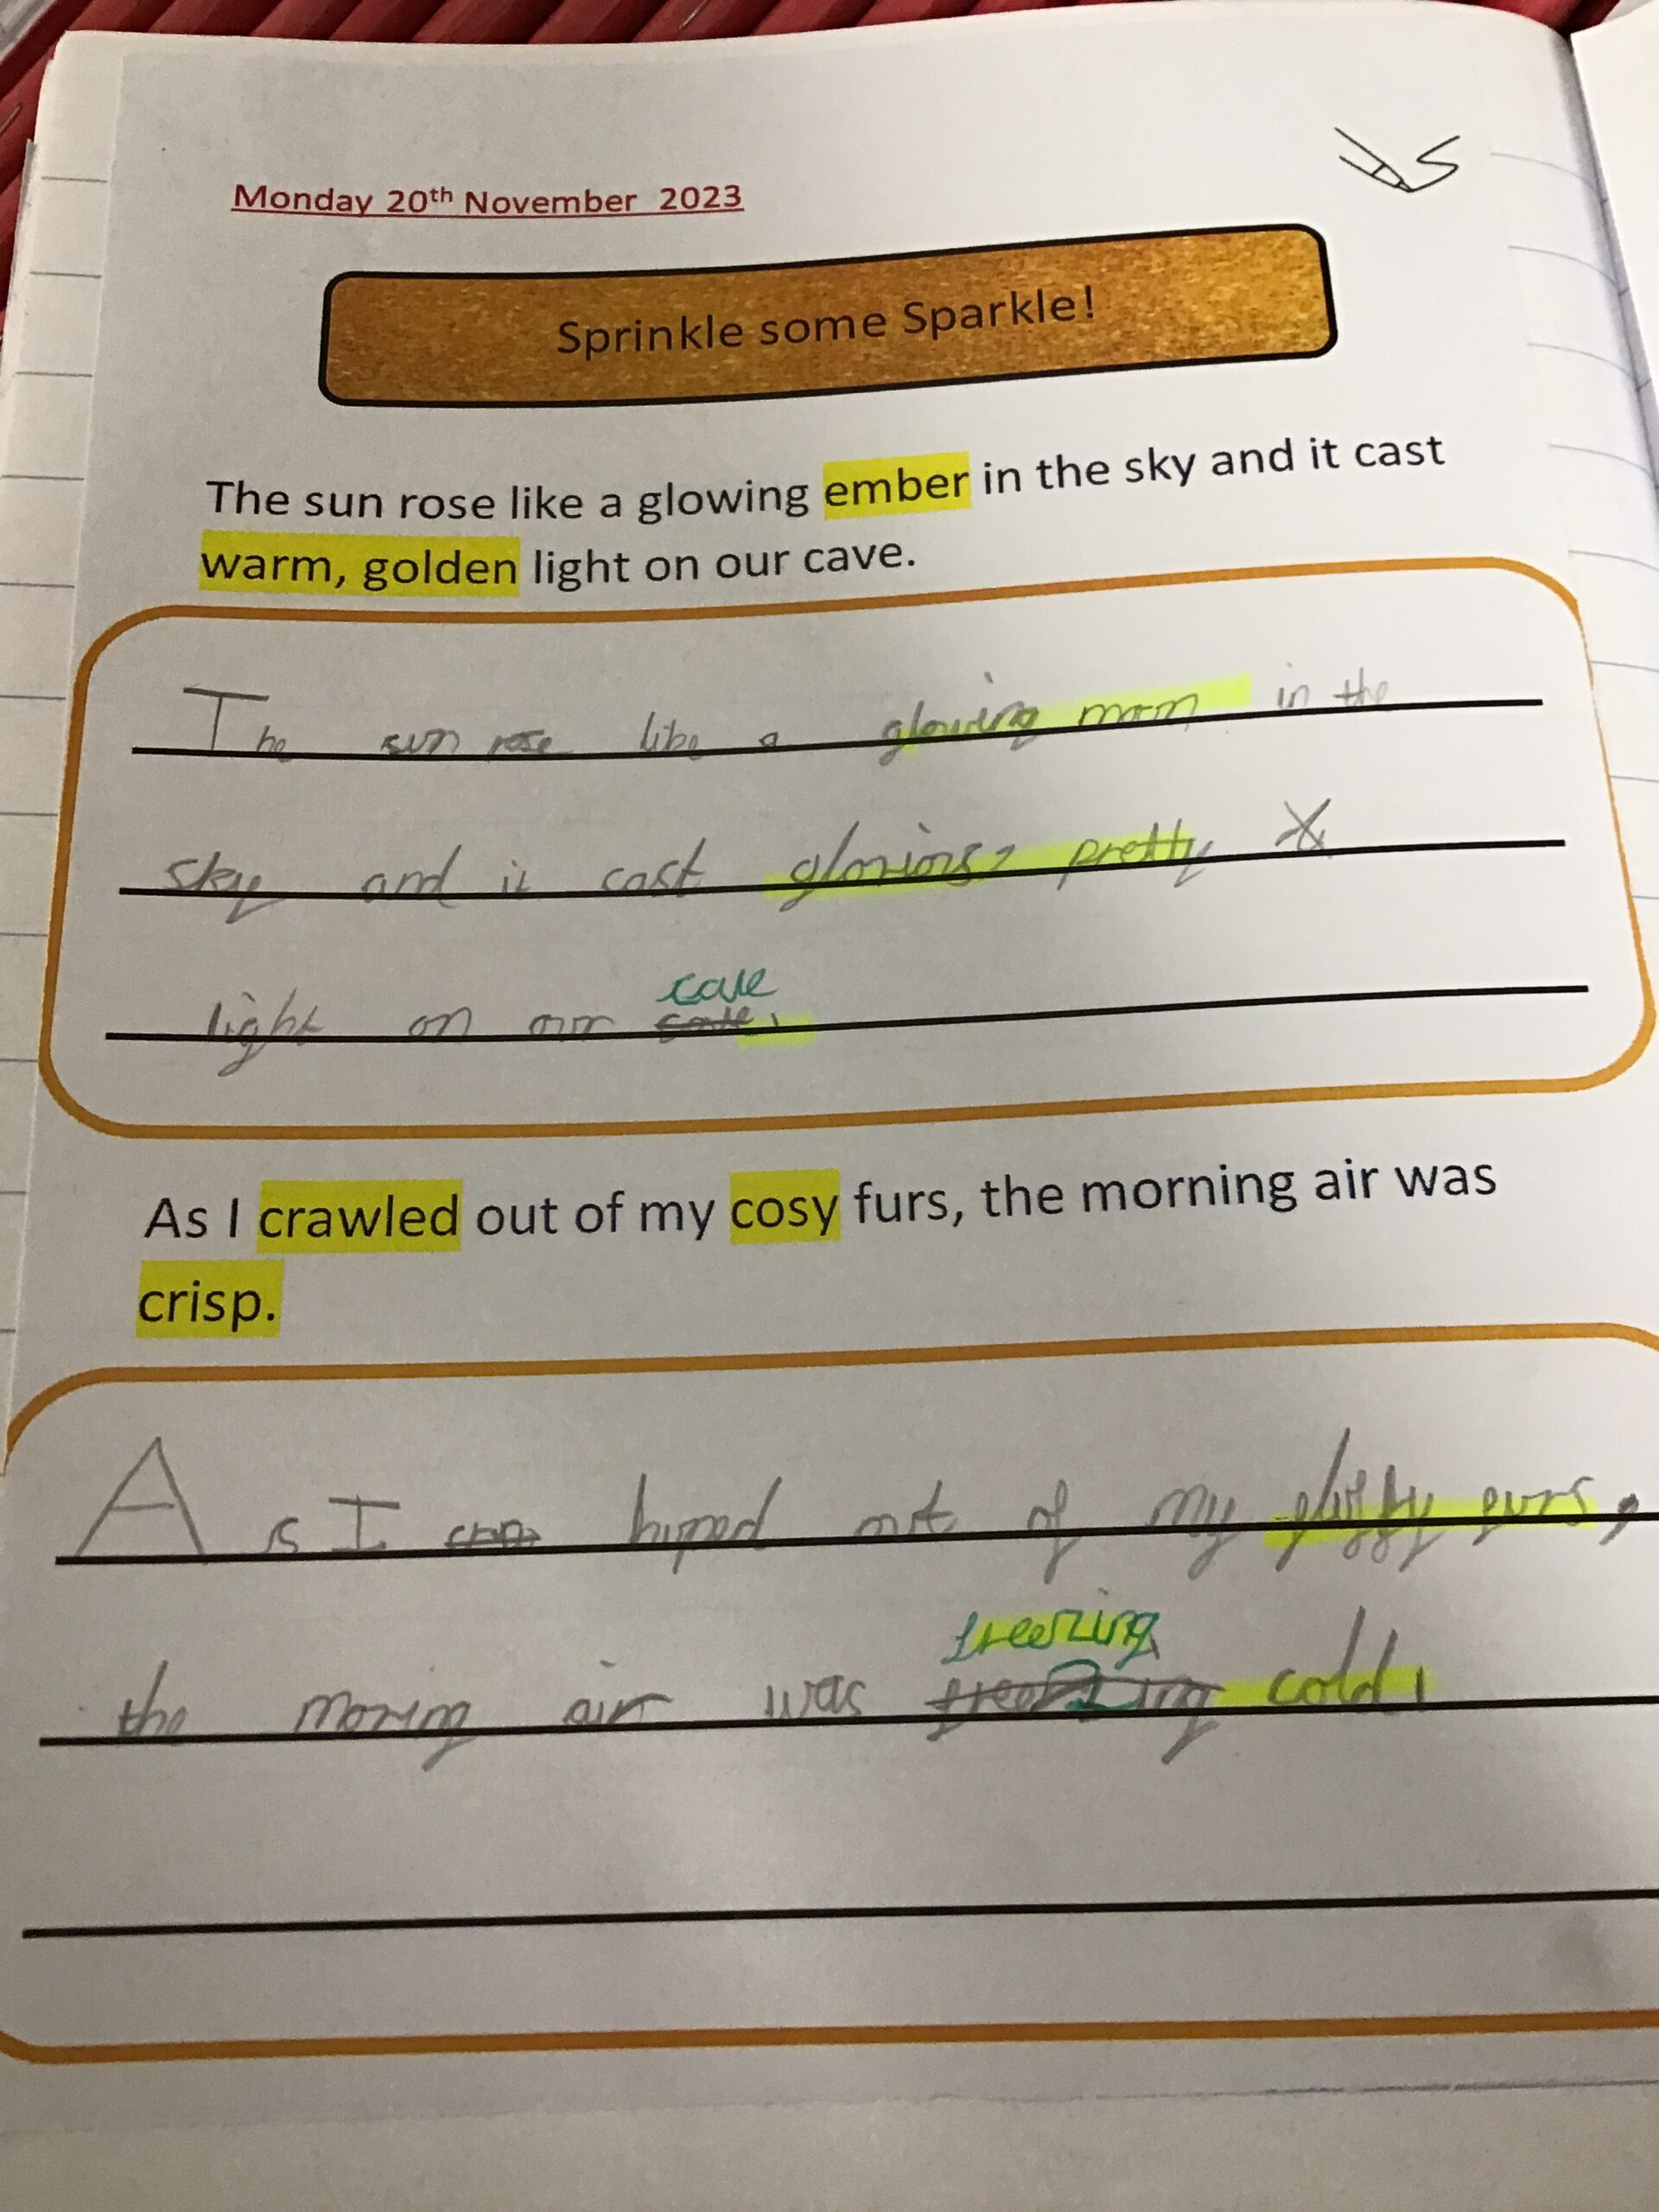 Monday 20th November 2023
Sprinkle some Sparkle!
The sun rose like a glowing ember in the sky and it cast
warm, golden light on our cave.
The sun rose like a glowing moon in the
sky and it cast glorious, pretty
cave
light on our
As I crawled out of my cosy furs, the morning air was
crisp.
As I out of my furs,
freezing
the moring air was cold.